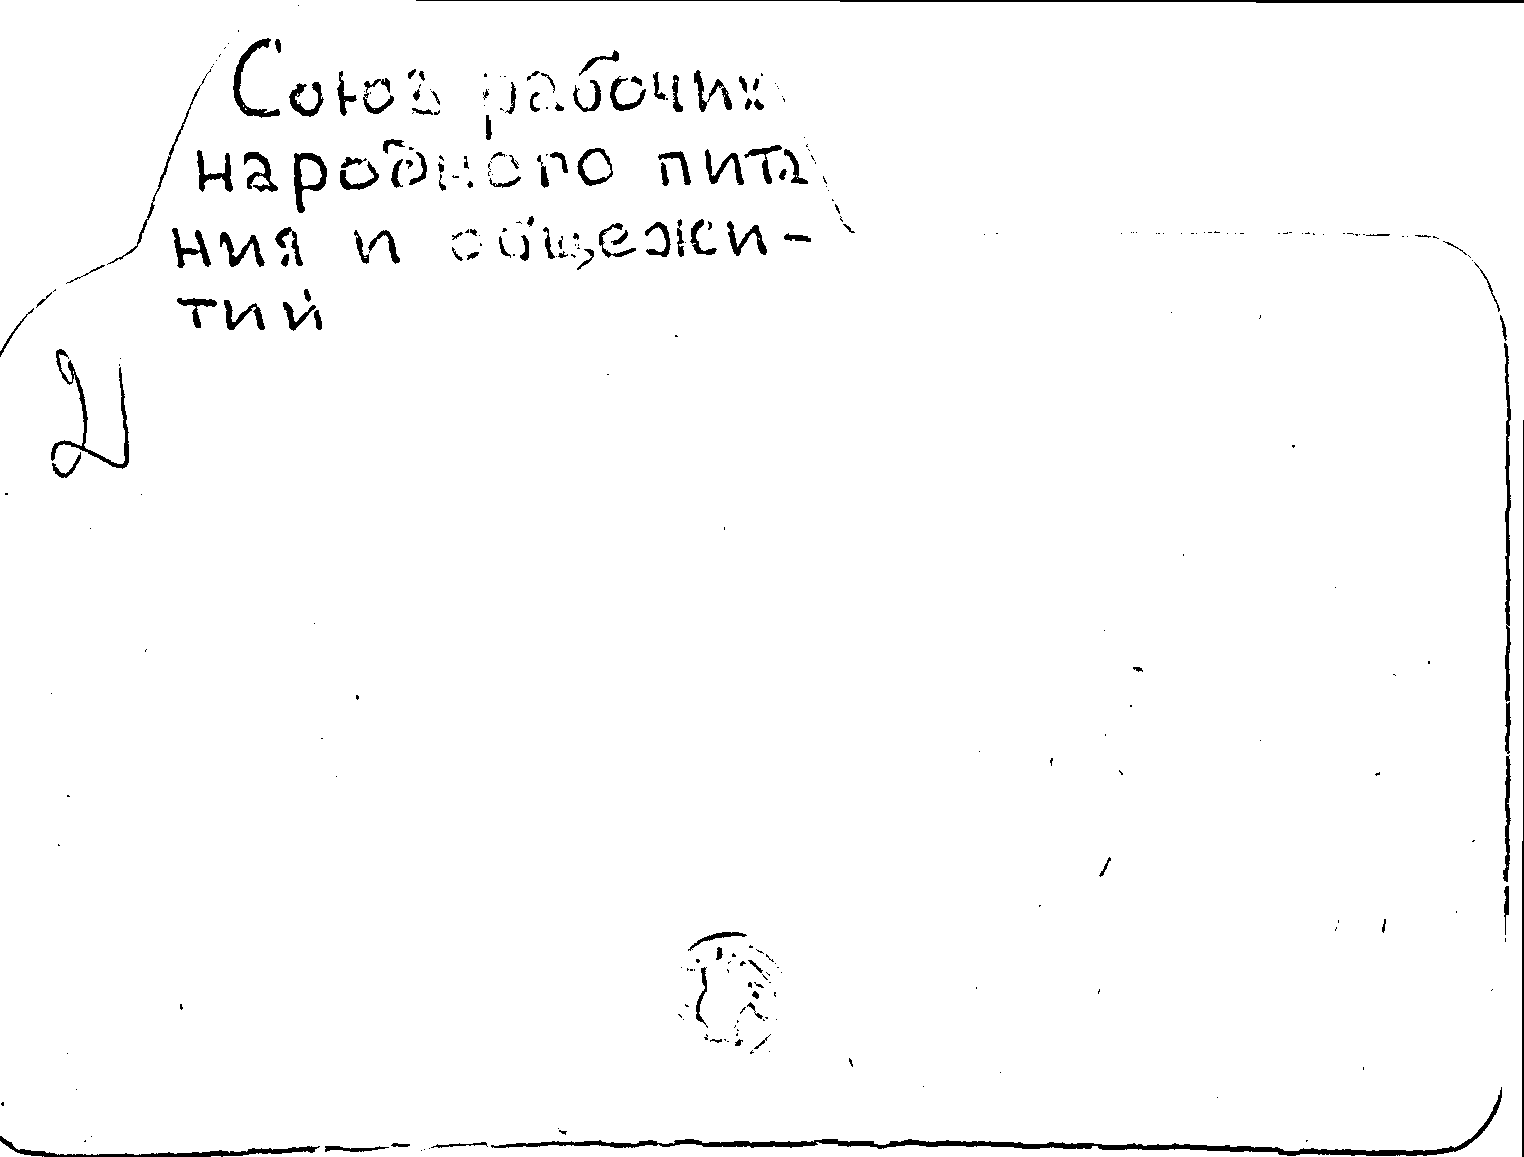 Союз рабочих
народного пита
ния и общежи-
тий
21